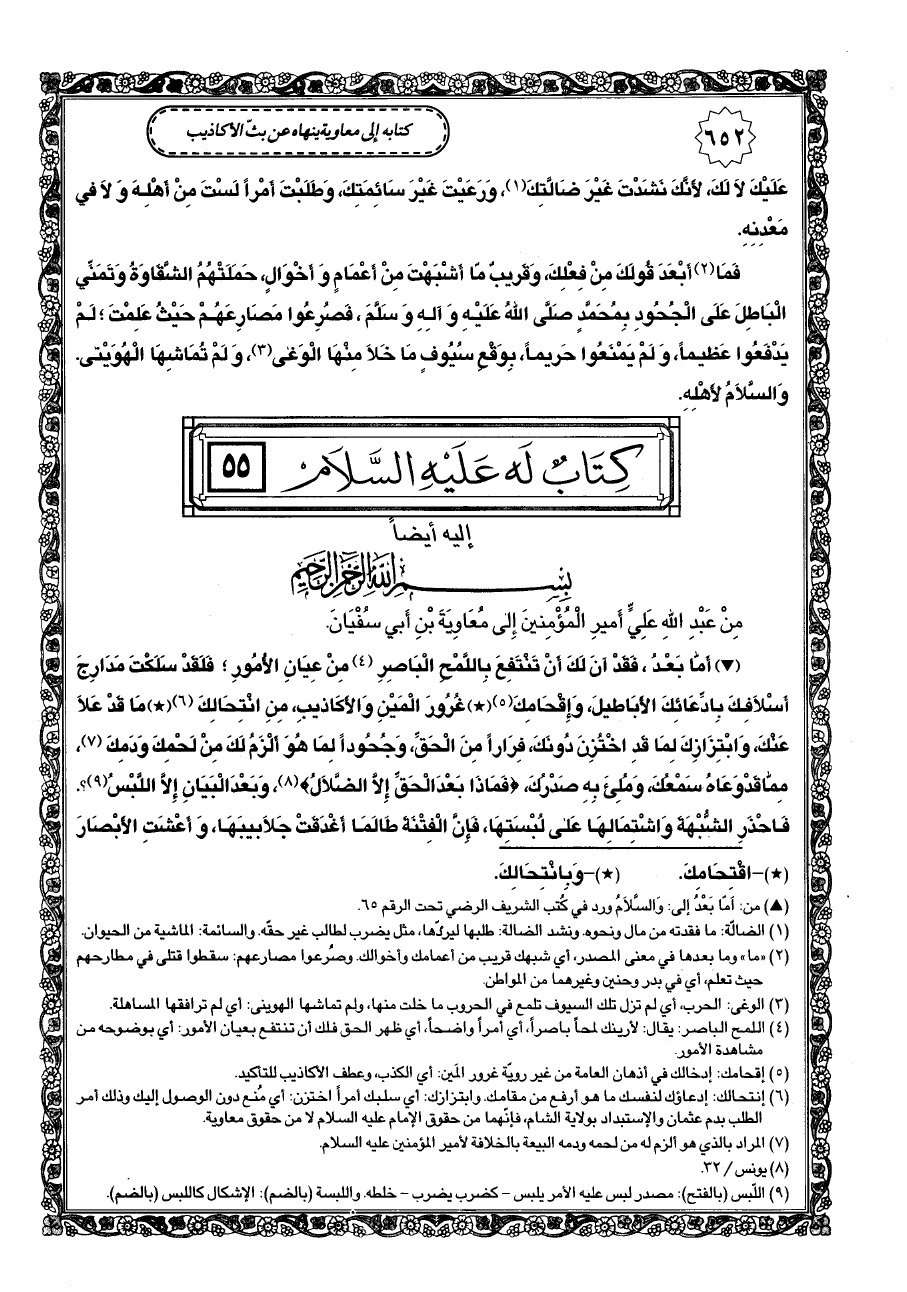 ٦٥٢
كتابه إلى معاوية ينهاه عن بثّ الأكاذيب
عَلَيْكَ لاَ لَكَ، لأَنَّكَ نَشَدْتَ غَيْرَ ضَالَّتِكَ(١)، وَرَعَيْتَ غَيْرَ سَائِمَتِكَ، وَطَلَبْتَ أَمْراً لَسْتَ مِنْ أَهْلِهِ وَ لاَ في
مَعْدِنِهِ.
فَمَا(٢) أَبْعَدَ قَوْلَكَ مِنْ فِعْلِكَ، وَقَريبٌ مَا أَشْبَهْتَ مِنْ أَعْمَامٍ وَ أَخْوَالٍ، حَمَلَتْهُمُ الشَّقَاوَةُ وَتَمَنِّي
الْبَاطِلَ عَلَى الْجُحُودِ بِمُحَمَّدٍ صَلَّى اللهُ عَلَيْهِ وَ آلِهِ وَ سَلَّمَ، فَصُرِعُوا مَصَارِعَهُمْ حَيْثُ عَلِمْتَ؛ لَمْ
يَدْفَعُوا عَظيماً، وَ لَمْ يَمْنَعُوا حَريماً، بِوَقْعِ سُيُوفٍ مَا خَلاَ مِنْهَا الْوَغَى(٣)، وَ لَمْ تُمَاشِهَا الْهُوَيْنى.
وَالسَّلاَمُ لأَهْلِهِ.
كِتَابٌ لَه عَلَيْهِ السَّلاَم ٥٥
إليه أيضاً
بِسْمِ اللهِ الرَّحْمنِ الرَّحيمِ
مِنْ عَبْدِ اللهِ عَلِيٍّ أَميرِ الْمُؤْمِنينَ إِلى مُعَاوِيَةَ بْنِ أَبي سُفْيَانَ.
(▼) أَمَّا بَعْدُ، فَقَدْ آنَ لَكَ أَنْ تَنْتَفِعَ بِاللَّمْحِ الْبَاصِرِ (٤) مِنْ عِيَانِ الأُمُورِ؛ فَلَقَدْ سَلَكْتَ مَدَارِجَ
أَسْلاَفِكَ بِادِّعَائِكَ الأَبَاطيلَ، وَإِقْحَامِكَ(٥)(★) غُرُورَ الْمَيْنِ وَالأَكَاذيبِ، مِنِ انْتِحَالِكَ (٦)(★) مَا قَدْ عَلاَ
عَنْكَ، وَابْتِزَازِكَ لِمَا قَدِ اخْتُزِنَ دُونَكَ، فِرَاراً مِنَ الْحَقِّ، وَجُحُوداً لِمَا هُوَ أَلْزَمُ لَكَ مِنْ لَحْمِكَ وَدَمِكَ (٧)،
مِمَّا قَدْ وَعَاهُ سَمْعُكَ، وَمُلِئَ بِهِ صَدْرُكَ، ﴿فَمَاذَا بَعْدَ الْحَقِّ إِلاَّ الضَّلاَلُ﴾(٨)، وَبَعْدَ الْبَيَانِ إِلاَّ اللَّبْسُ(٩)؟.
فَاحْذَرِ الشُّبْهَةَ وَاشْتِمَالِهَا عَلى لُبْسَتِهَا، فَإِنَّ الْفِتْنَةَ طَالَمَا أَغْدَقَتْ جَلاَبيبَهَا، وَ أَعْشَتِ الأَبْصَارَ
(★)-اقْتِحَامِكَ. (★)-وَبِانْتِحَالِكَ.
(▲) من: أَمَّا بَعْدُ إلى: وَالسَّلاَمُ ورد في كُتب الشريف الرضي تحت الرقم ٦٥.
(١) الضالّة: ما فقدته من مال ونحوه. ونشد الضالة: طلبها ليردّها، مثل يضرب لطالب غير حقّه. والسائمة: الماشية من الحيوان.
(٢) «ما» وما بعدها في معنى المصدر، أي شبهك قريب من أعمامك وأخوالك. وصُرعوا مصارعهم: سقطوا قتلى في مطارحهم
حيث تعلم، أي في بدر وحنين وغيرهما من المواطن.
(٣) الوغى: الحرب، أي لم تزل تلك السيوف تلمع في الحروب ما خلت منها، ولم تماشها الهوينى: أي لم ترافقها المساهلة.
(٤) اللمح الباصر: يقال: لأرينك لمحاً باصراً، أي أمراً واضحاً، أي ظهر الحق فلك أن تنتفع بعيان الأمور: أي بوضوحه من
مشاهدة الأمور.
(٥) إقحامك: إدخالك في أذهان العامة من غير رويّة غرور المَين: أي الكذب، وعطف الأكاذيب للتأكيد.
(٦) إنتحالك: إدعاؤك لنفسك ما هو أرفع من مقامك. وابتزازك: أي سلبك أمراً اختزن: أي مُنع دون الوصول إليك وذلك أمر
الطلب بدم عثمان والإستبداد بولاية الشام، فإنّهما من حقوق الإمام عليه السلام لا من حقوق معاوية.
(٧) المراد بالذي هو ألزم له من لحمه ودمه البيعة بالخلافة لأمير المؤمنين عليه السلام.
(٨) يونس / ٣٢.
(٩) اللَّبس (بالفتح): مصدر لبس عليه الأمر يلبس - كضرب يضرب - خلطه. واللبسة (بالضم): الإشكال كاللبس (بالضم).